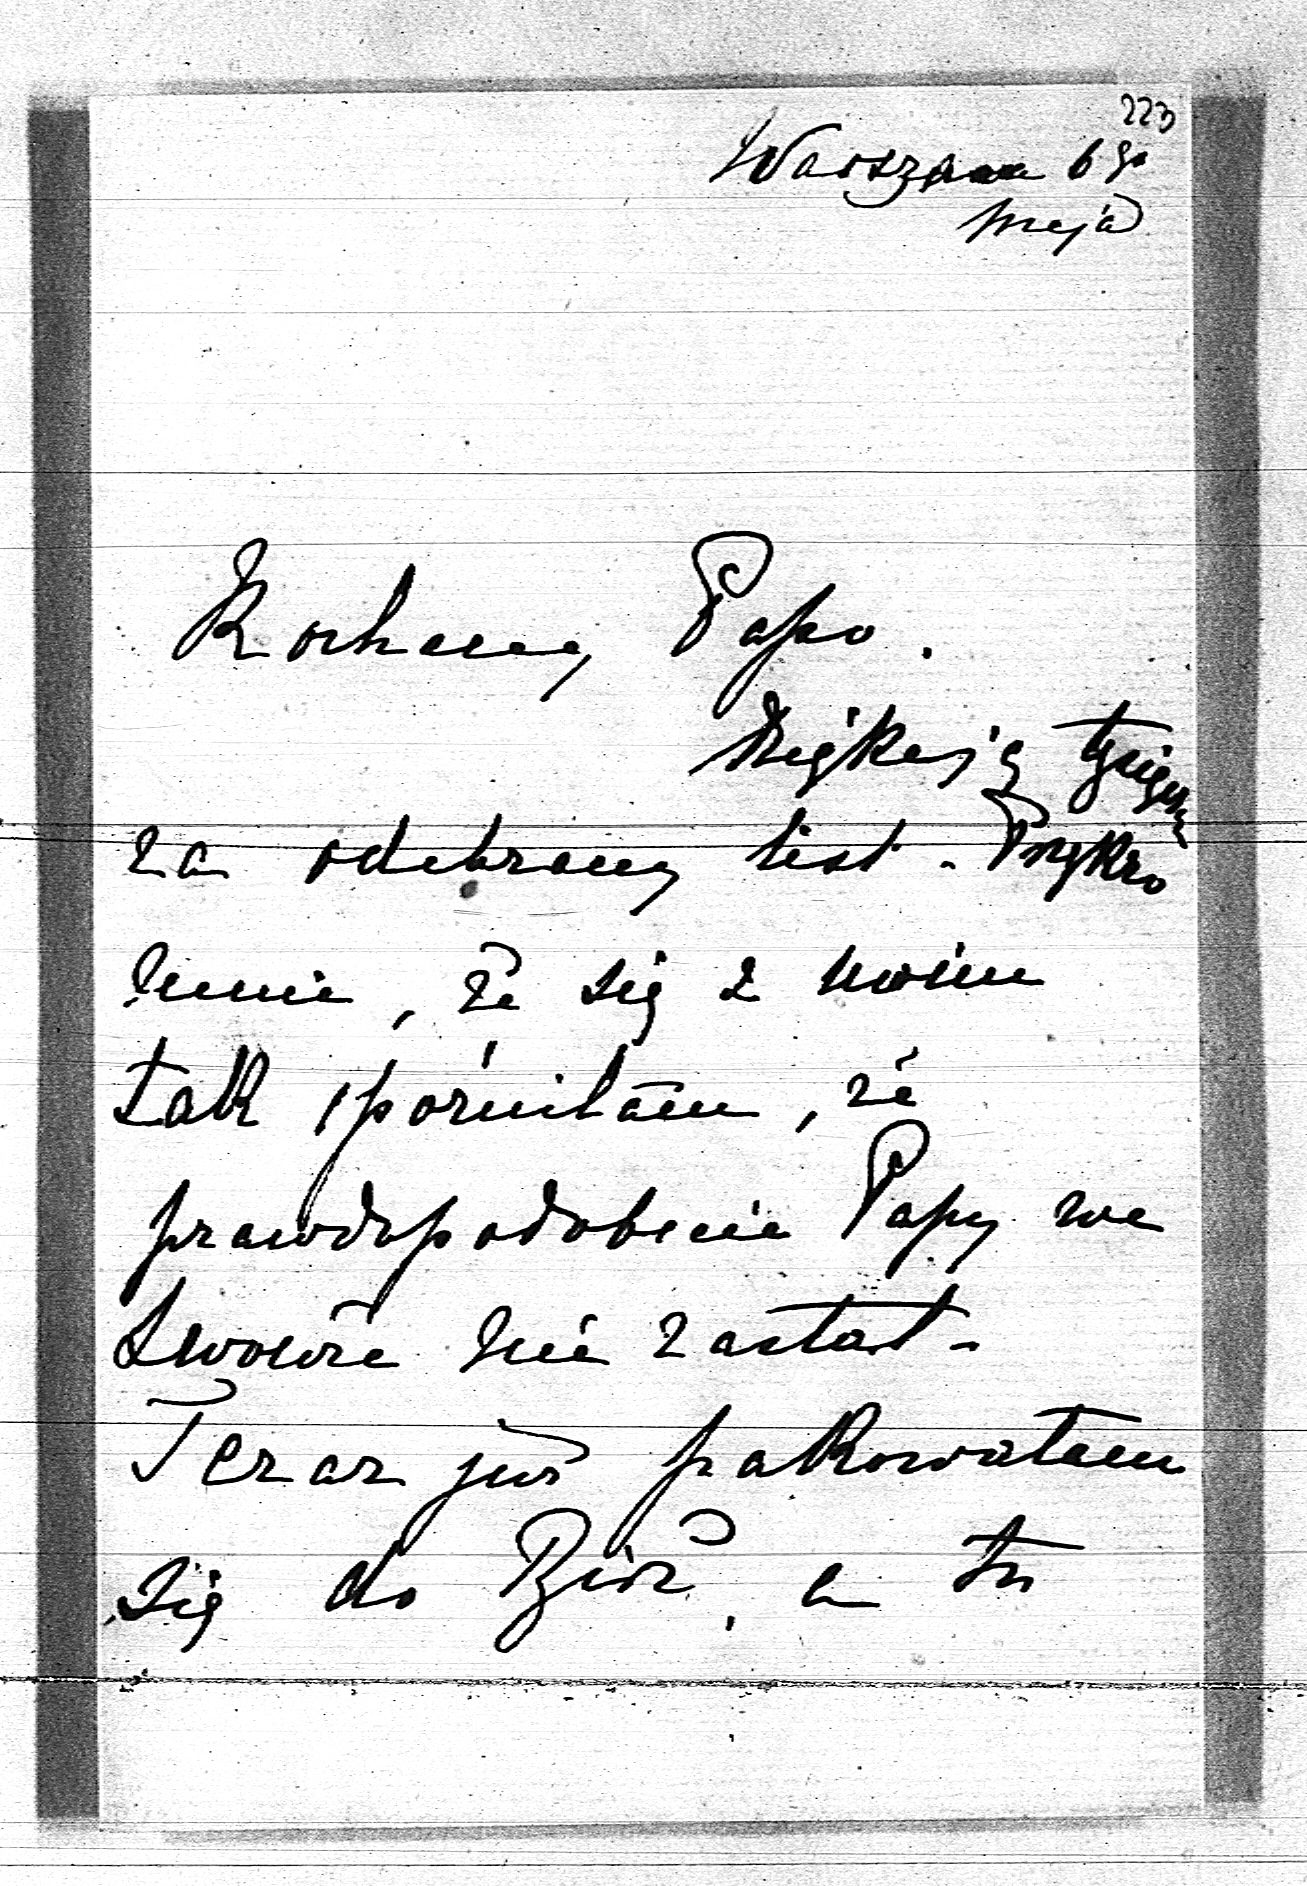 223
Warszawa 6go
maja
Kochany Papo.
Dziękuję
za odebrany list. Przykro
mnie, że się z moim
tak spóźniłam, że
prawdopodobnie Papy we
Lwowie nie zastał.
Teraz już pakowałam
się do , a tu